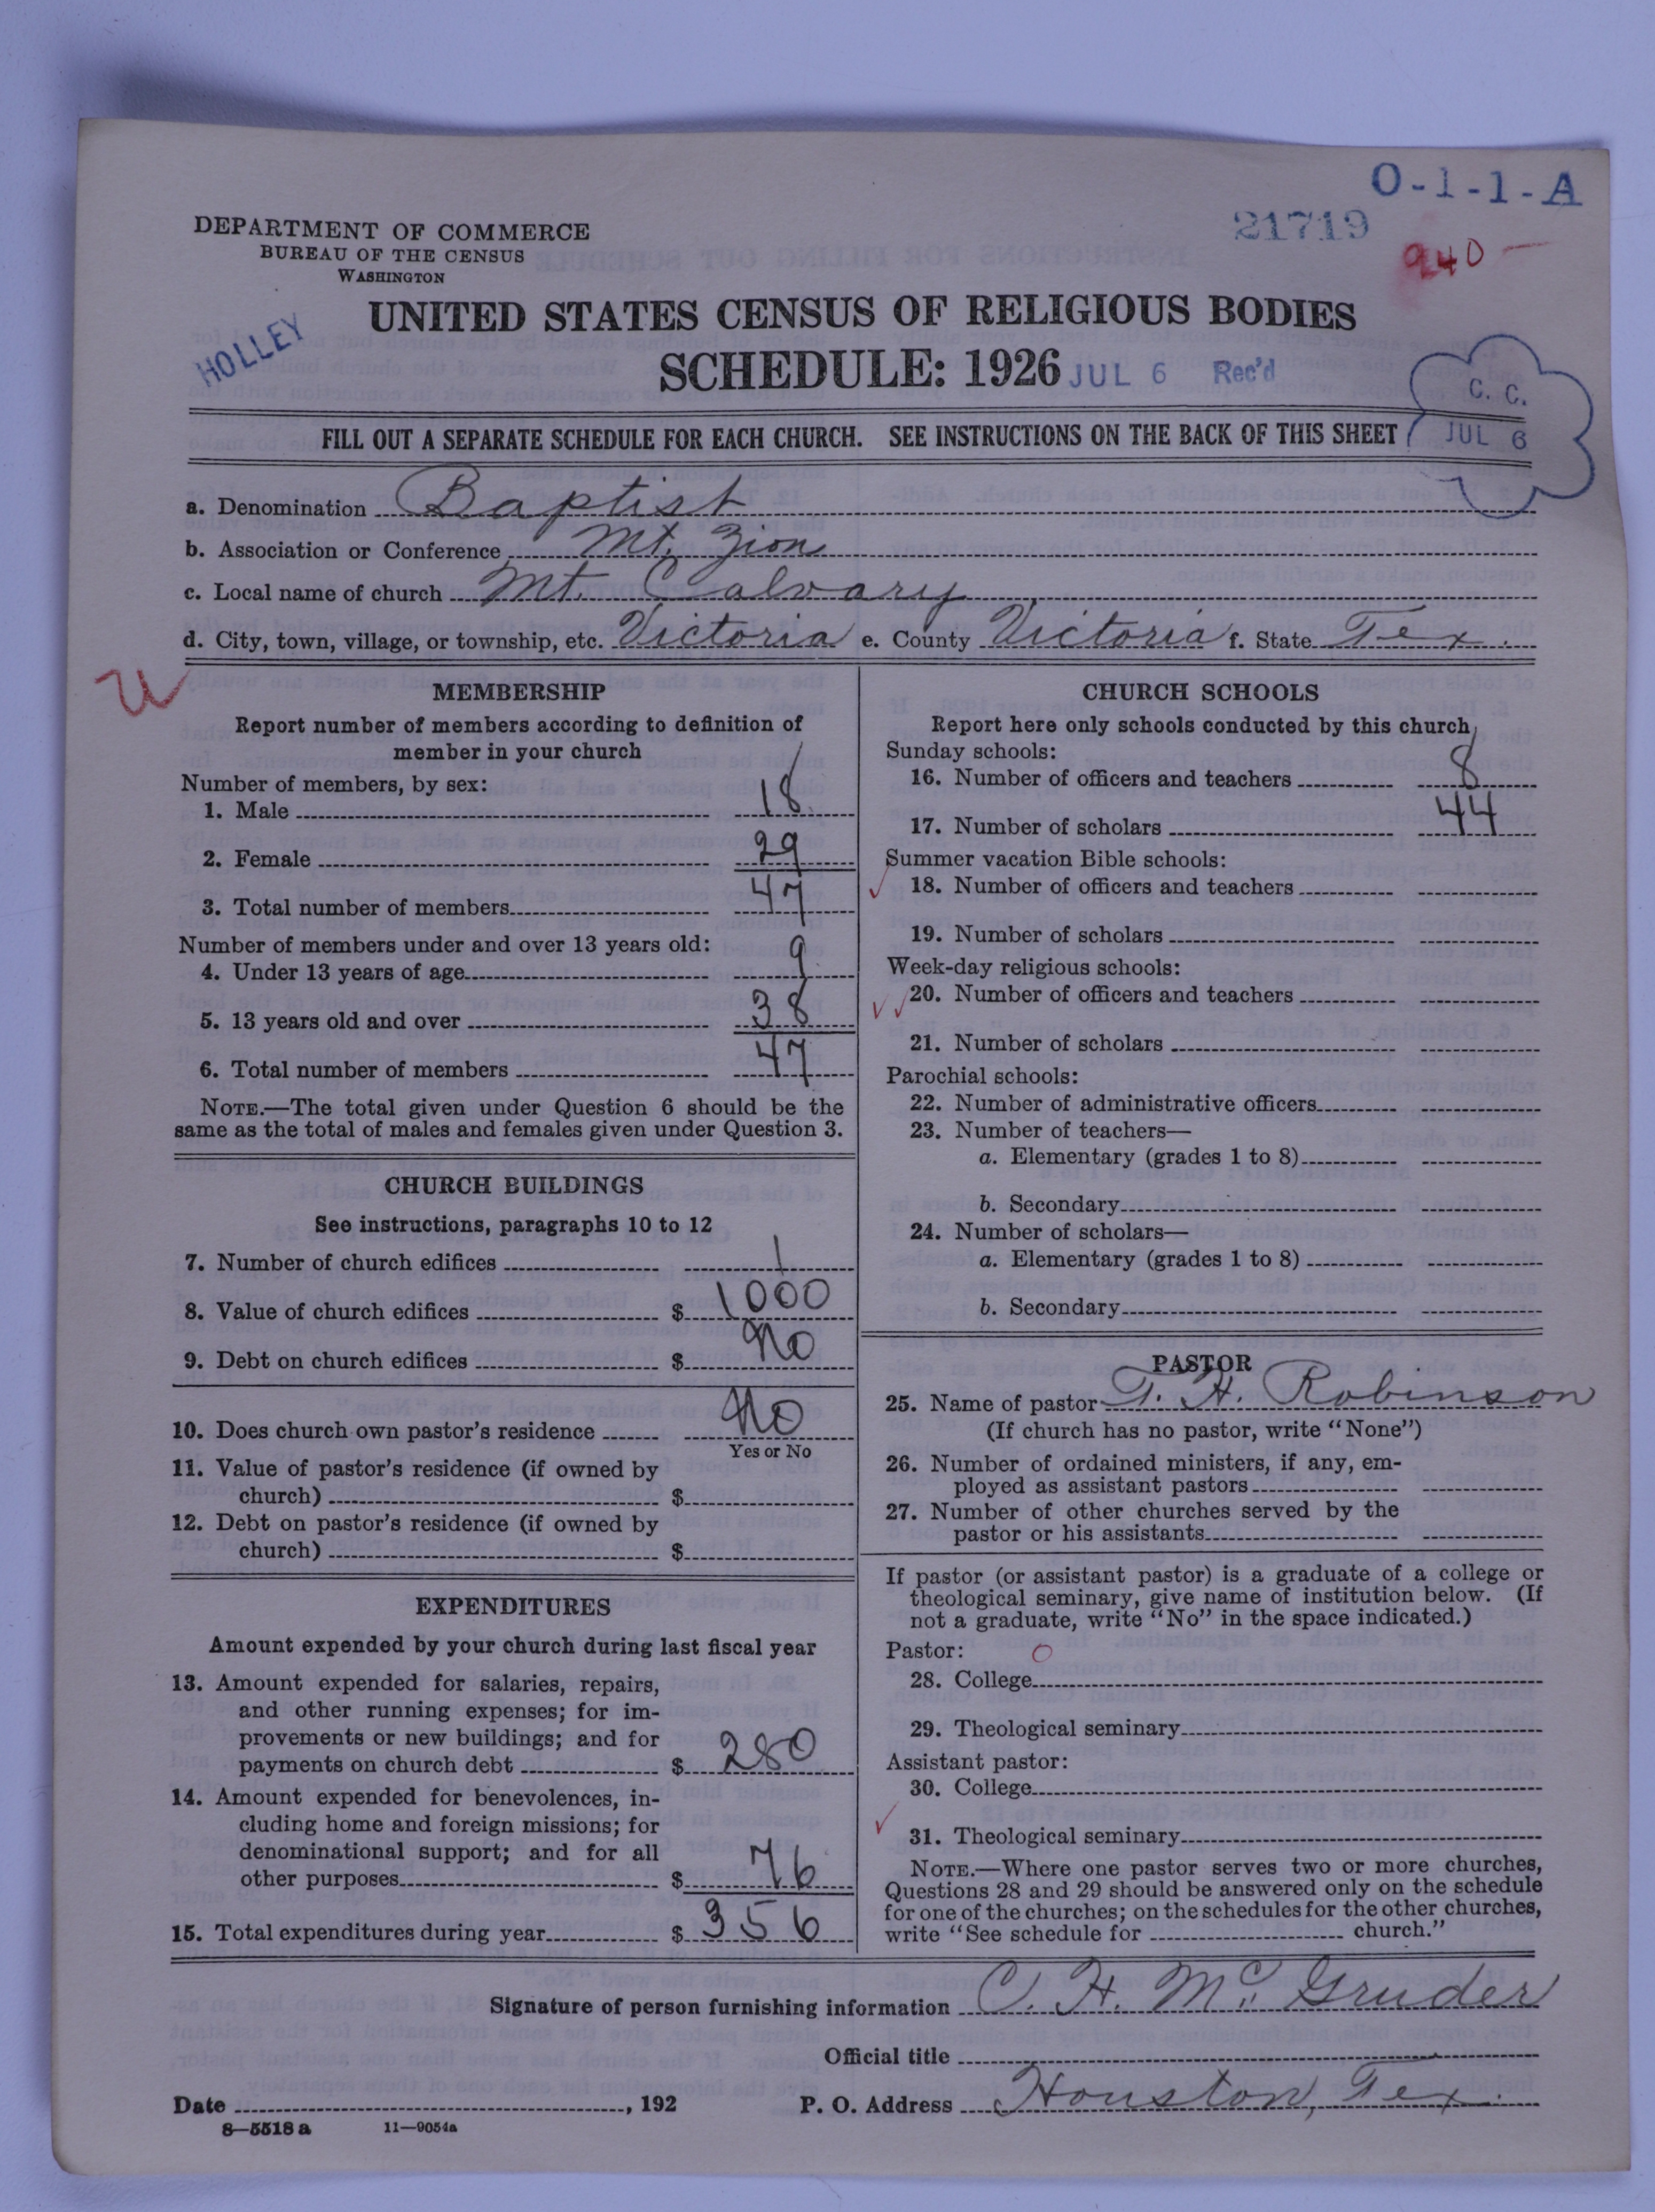 O-1-1-A
21719
940
DEPARTMENT OF COMMERCE
BUREAU OF THE CENSUS
WASHINGTON
HOLLEY
UNITED STATES CENSUS OF RELIGIOUS BODIES
SCHEDULE: 1926 JUL 6 Rec'd
C. C.
JUL 6
FILL OUT A SEPARATE SCHEDULE FOR EACH CHURCH. SEE INSTRUCTIONS ON THE BACK OF THIS SHEET
a. Denomination Baptist
b. Association or Conference Mt. Zion
c. Local name of church Mt. Calvary
d. City, town, village, or township, etc. Victoria e. County Victoria f. State Tex.
MEMBERSHIP
Report number of members according to definition of
member in your church
Number of members, by sex:
1. Male 18
2. Female 29
3. Total number of members 47
Number of members under and over 13 years old:
4. Under 13 years of age 9
5. 13 years old and over 38
6. Total number of members 47
NOTE.—The total given under Question 6 should be the
same as the total of males and females given under Question 3.
CHURCH BUILDINGS
See instructions, paragraphs 10 to 12
7. Number of church edifices 1
8. Value of church edifices $ 1000
9. Debt on church edifices $ No
10. Does church own pastor's residence No
Yes or No
11. Value of pastor's residence (if owned by
church) $
12. Debt on pastor's residence (if owned by
church) $
EXPENDITURES
Amount expended by your church during last fiscal year
13. Amount expended for salaries, repairs,
and other running expenses; for im-
provements or new buildings; and for
payments on church debt $ 280
14. Amount expended for benevolences, in-
cluding home and foreign missions; for
denominational support; and for all
other purposes $ 76
15. Total expenditures during year $ 356
CHURCH SCHOOLS
Report here only schools conducted by this church
Sunday schools:
16. Number of officers and teachers 8
17. Number of scholars 44
Summer vacation Bible schools:
18. Number of officers and teachers
19. Number of scholars
Week-day religious schools:
20. Number of officers and teachers
21. Number of scholars
Parochial schools:
22. Number of administrative officers
23. Number of teachers—
a. Elementary (grades 1 to 8)
b. Secondary
24. Number of scholars—
a. Elementary (grades 1 to 8)
b. Secondary
PASTOR
25. Name of pastor T. H. Robinson
(If church has no pastor, write "None")
26. Number of ordained ministers, if any, em-
ployed as assistant pastors
27. Number of other churches served by the
pastor or his assistants
If pastor (or assistant pastor) is a graduate of a college or
theological seminary, give name of institution below. (If
not a graduate, write "No" in the space indicated.)
Pastor: O
28. College
29. Theological seminary
Assistant pastor:
30. College
31. Theological seminary
NOTE.—Where one pastor serves two or more churches,
Questions 28 and 29 should be answered only on the schedule
for one of the churches; on the schedules for the other churches,
write "See schedule for church."
Signature of person furnishing information C. H. McGruder
Official title
Date , 192 P. O. Address Houston, Tex.
8—5518 a 11—9054a